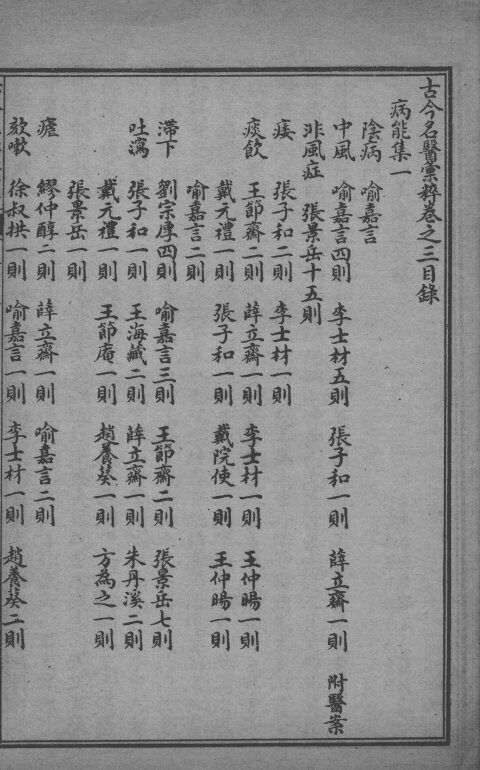 古今名醫彙粹卷之三目錄
病能集一
陰病 喻嘉言
中風 喻嘉言四則 李士材五則 張子和一則 薛立齋一則 附醫案
非風症 張景岳十五則
痿 張子和二則 李士材一則
痰飲 王節齋二則 薛立齋一則 李士材一則 王仲暘一則
戴元禮一則 張子和一則 戴院使一則 王仲暘一則
喻嘉言二則
滯下 劉宗厚四則 喻嘉言三則 王節齋二則 張景岳七則
吐瀉 張子和一則 王海藏二則 薛立齋一則 朱丹溪二則
戴元禮一則 王節庵一則 趙養葵一則 方為之一則
張景岳一則
瘧 繆仲醇二則 薛立齋一則 喻嘉言二則
欬嗽 徐叔拱一則 喻嘉言一則 李士材一則 趙養葵二則